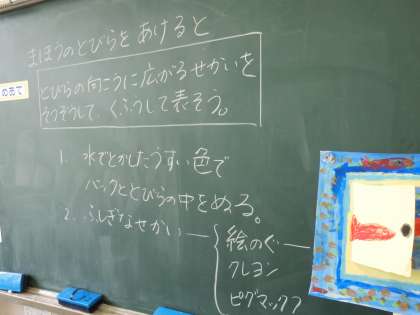 まほうのとびらを あけると
めあて
とびらの向こうに広がるせかいを
そうぞうして、くふうして表そう。
1. 水でとかしたうすい色で
バックととびらの中をぬる。
2. ふしぎなせかい
絵のぐ
クレヨン